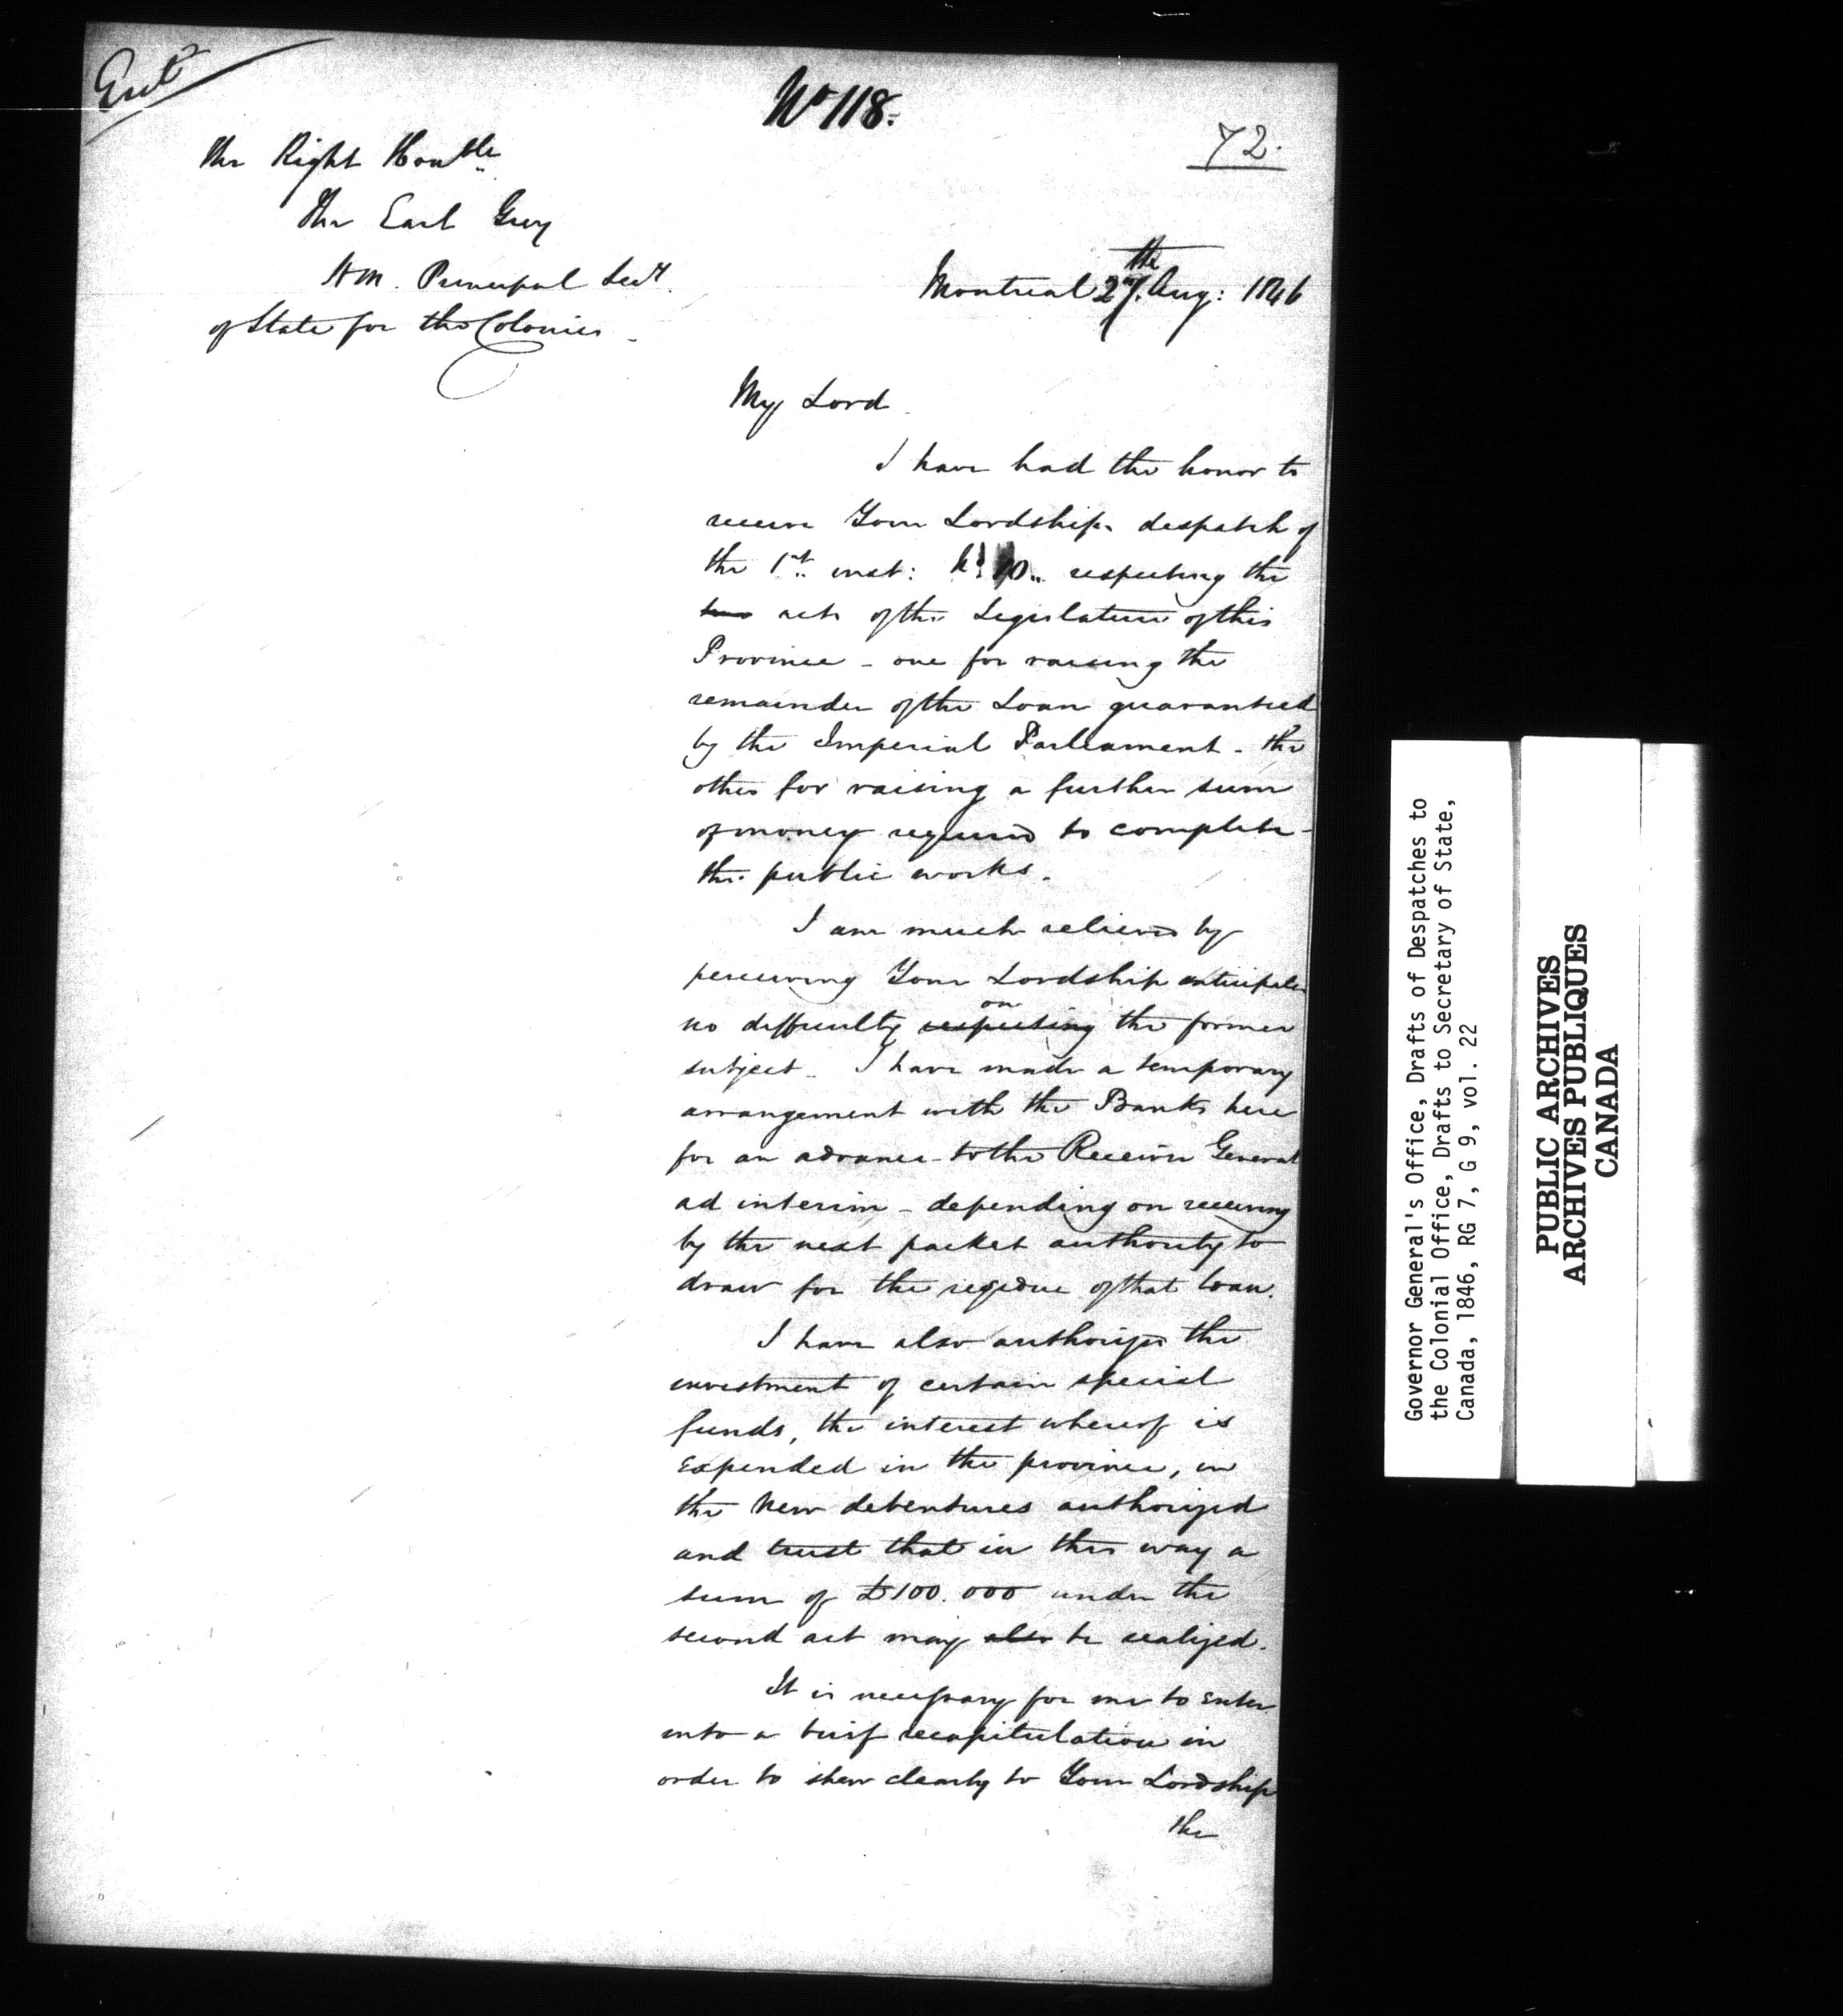 Entd
No 118.
72.
The Right Honble
The Earl Grey
HM. Principal Secy.
of State for the Colonies
Montreal 27th Aug: 1846
My Lord
I have had the honor to
receive Your Lordships despatch of
the 1st inst: No 10 respecting the
two acts of the Legislature of this
Province - one for raising the
remainder of the Loan guaranteed
by the Imperial Parliament - the
other for raising a further sum
of money required to complete
the public works.
I am much relieved by
perceiving Your Lordship anticipates
on
no difficulty respecting the former
subject - I have made a temporary
arrangement with the Banks here
for an advance to the Receiver General
ad interim - depending on receiving
by the next packet authority to
draw for the residue of that loan.
I have also authorized the
investment of certain special
funds, the interest whereof is
expended in the province, in
the new debentures authorized
and trust that in this way a
sum of £100.000 under the
second act may also be realized.
It is necessary for me to enter
into a brief recapitulation in
order to shew clearly to Your Lordship
the
Governor General's Office, Drafts of Despatches to
the Colonial Office, Drafts to Secretary of State,
Canada, 1846, RG 7, G 9, vol. 22
PUBLIC ARCHIVES
ARCHIVES PUBLIQUES
CANADA